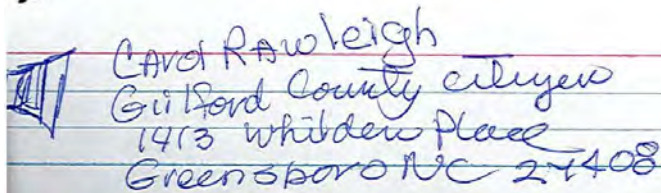 Carol Rawleigh
Guilford County citizen
1413 Whilden Place
Greensboro NC 27408